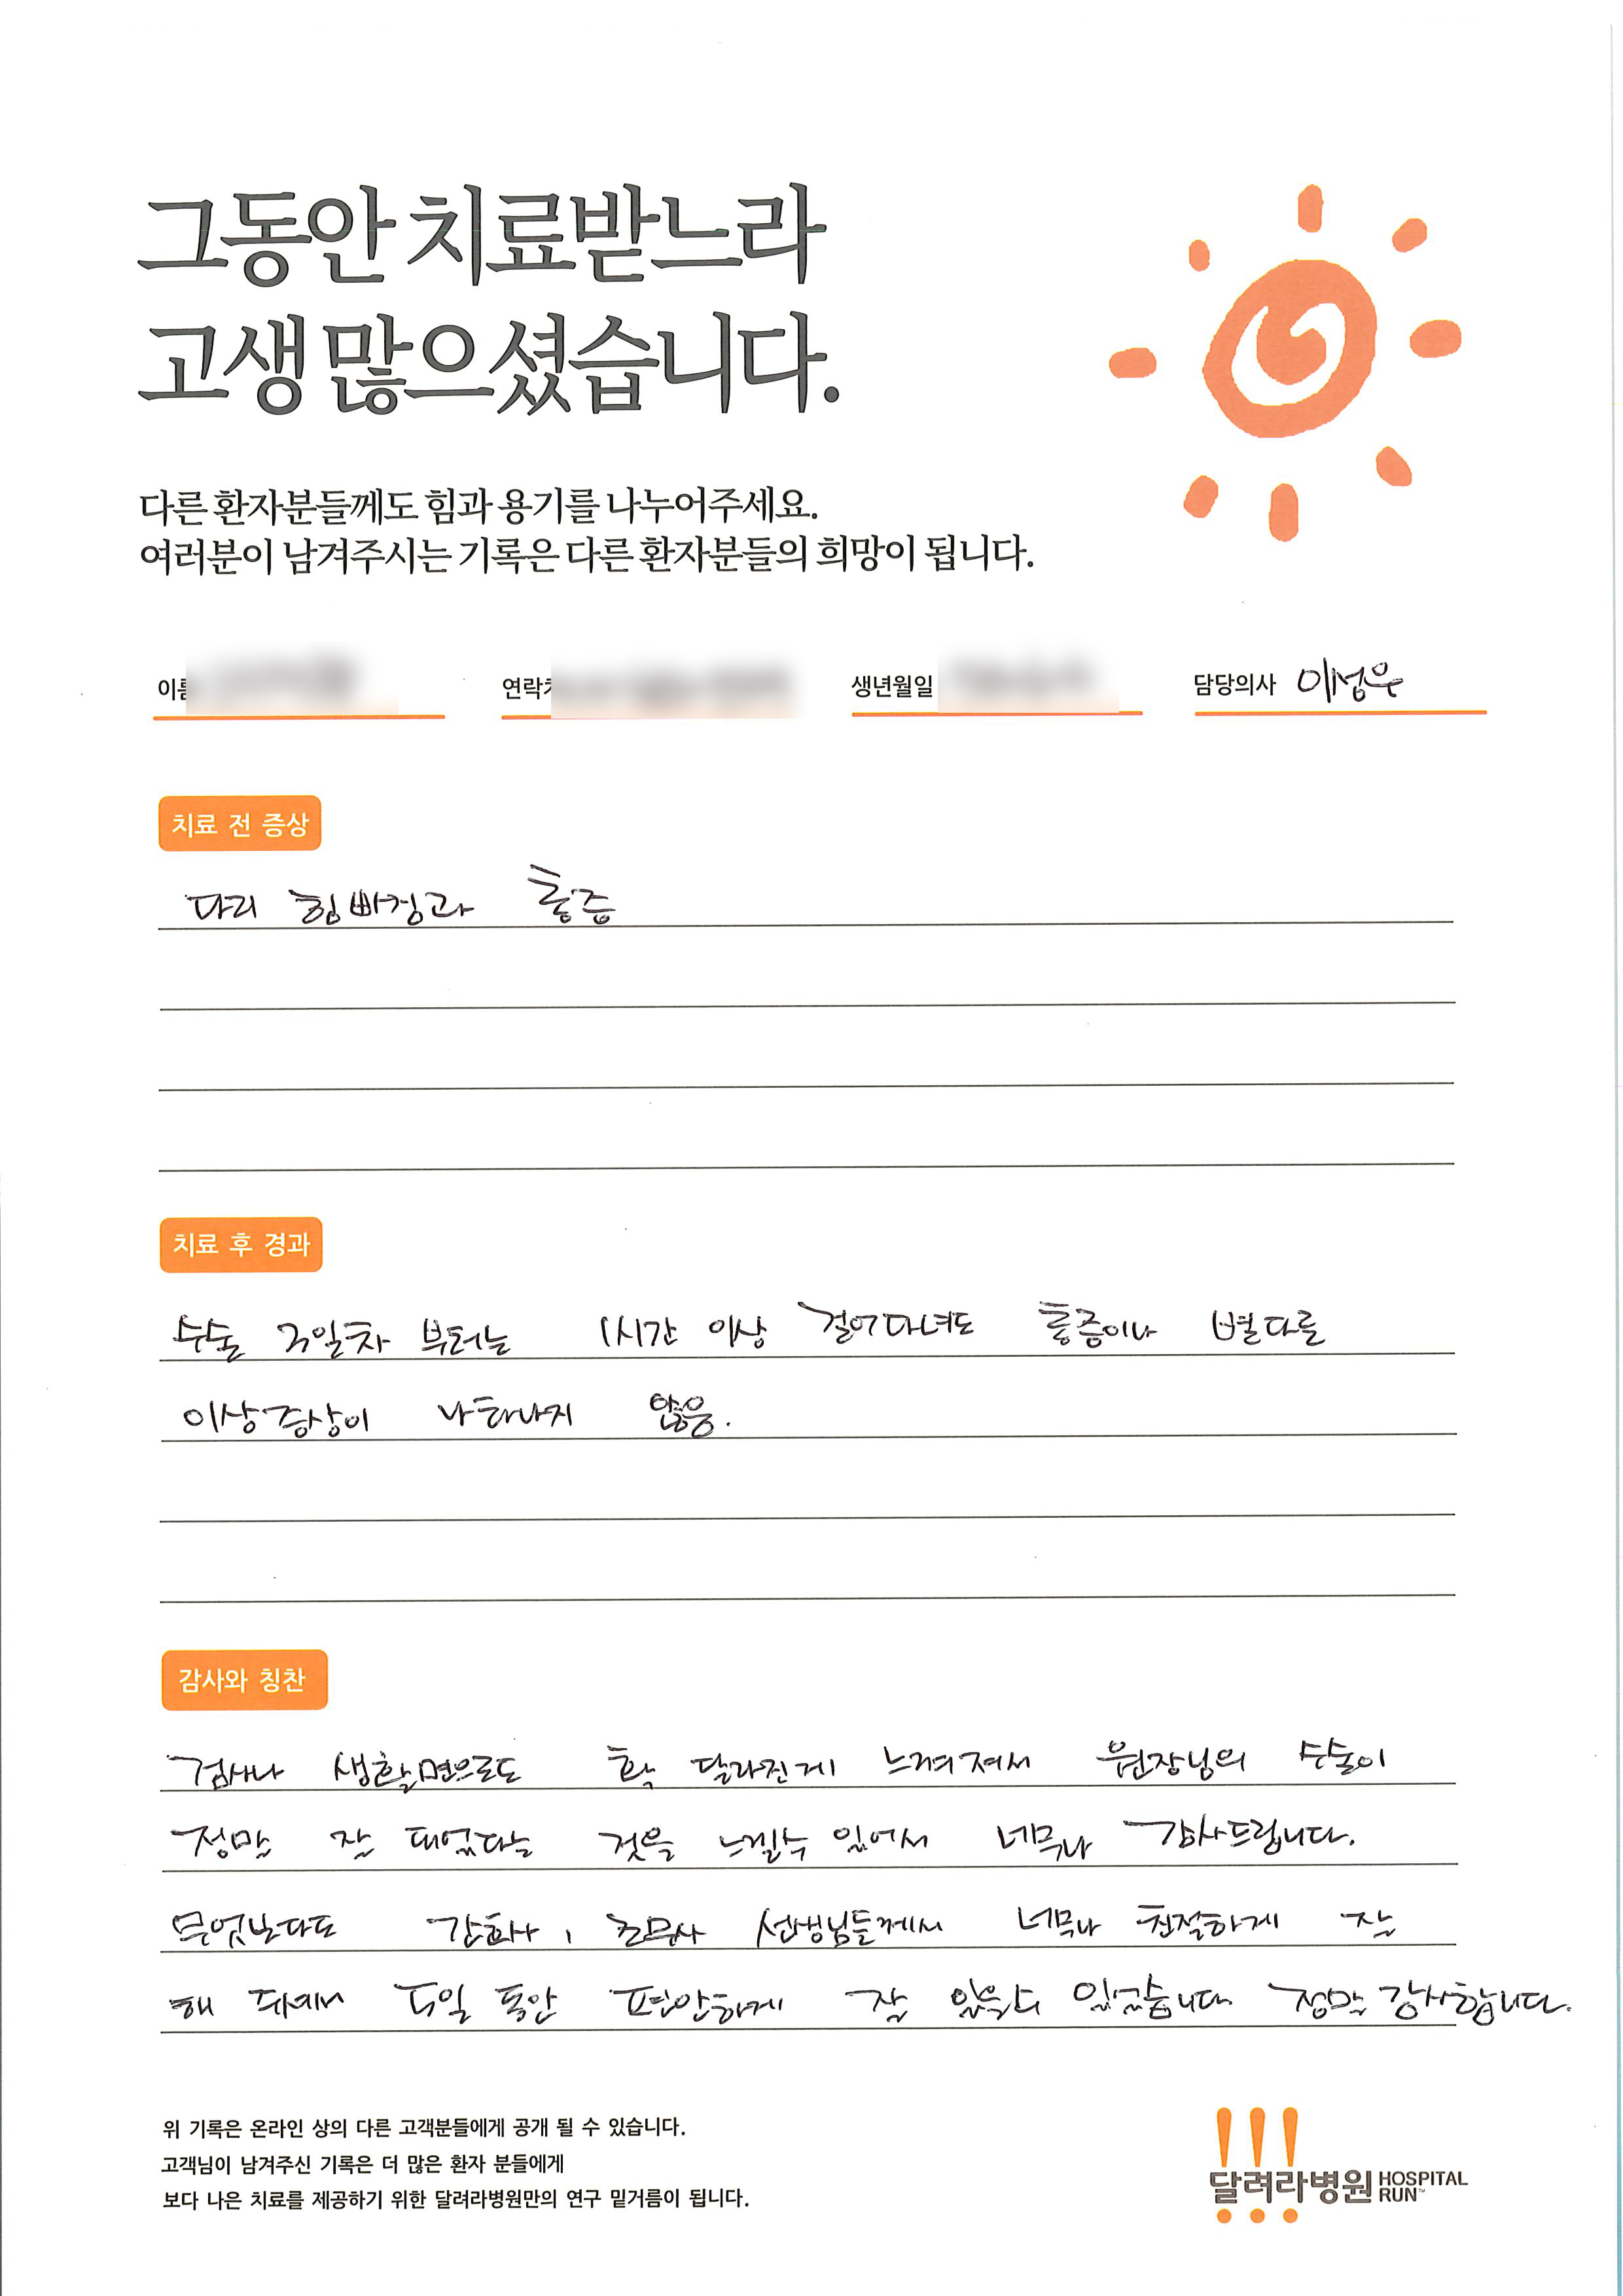 그동안 치료받느라
고생 많으셨습니다.
다른 환자분들께도 힘과 용기를 나누어주세요.
여러분이 남겨주시는 기록은 다른 환자분들의 희망이 됩니다.
이름 연락처 생년월일 담당의사 이성우
치료 전 증상
다리 힘빠짐과 통증
치료 후 경과
수술 3일차 부터는 1시간 이상 걸어다녀도 통증이나 별다를
이상증상이 나타나지 않음.
감사와 칭찬
검사나 생활면으로도 확 달라진게 느껴져서 원장님의 수술이
정말 잘 되었다는 것을 느낄수 있어서 너무나 감사드립니다.
무엇보다도 간호사, 조무사 선생님들께서 너무나 친절하게 잘
해 주셔서 5일 동안 편안하게 잘 있을수 있었습니다 정말 감사합니다.
위 기록은 온라인 상의 다른 고객분들에게 공개 될 수 있습니다.
고객님이 남겨주신 기록은 더 많은 환자 분들에게
보다 나은 치료를 제공하기 위한 달려라병원만의 연구 밑거름이 됩니다.
달려라병원 HOSPITAL RUN